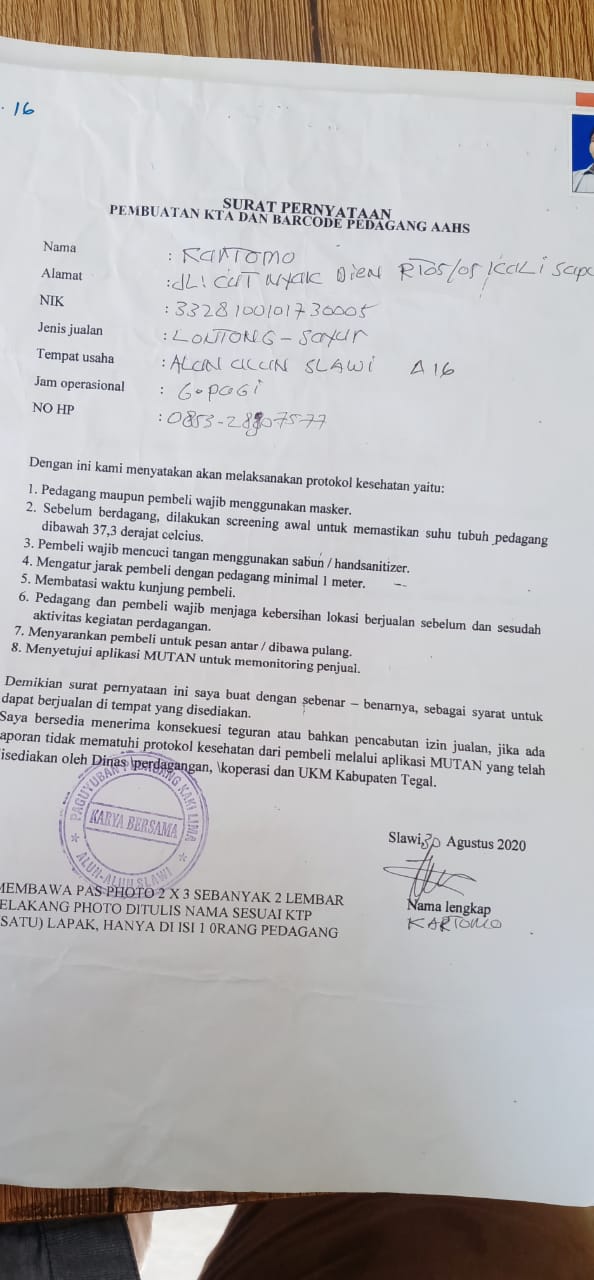 16
SURAT PERNYATAAN
PEMBUATAN KTA DAN BARCODE PEDAGANG AAHS
Nama : KARTOMO
Alamat : JL! CUT NYAK DIEN RT05/05 KALI SAPU
NIK : 3328100101730005
Jenis jualan : LONTONG - Sayur
Tempat usaha : ALUN ALUN SLAWI A16
Jam operasional : PAGI
NO HP : 0853-28807577
Dengan ini kami menyatakan akan melaksanakan protokol kesehatan yaitu:
1. Pedagang maupun pembeli wajib menggunakan masker.
2. Sebelum berdagang, dilakukan screening awal untuk memastikan suhu tubuh pedagang
dibawah 37,3 derajat celcius.
3. Pembeli wajib mencuci tangan menggunakan sabun / handsanitizer.
4. Mengatur jarak pembeli dengan pedagang minimal 1 meter.
5. Membatasi waktu kunjung pembeli.
6. Pedagang dan pembeli wajib menjaga kebersihan lokasi berjualan sebelum dan sesudah
aktivitas kegiatan perdagangan.
7. Menyarankan pembeli untuk pesan antar / dibawa pulang.
8. Menyetujui aplikasi MUTAN untuk memonitoring penjual.
Demikian surat pernyataan ini saya buat dengan sebenar – benarnya, sebagai syarat untuk
dapat berjualan di tempat yang disediakan.
Saya bersedia menerima konsekuesi teguran atau bahkan pencabutan izin jualan, jika ada
aporan tidak mematuhi protokol kesehatan dari pembeli melalui aplikasi MUTAN yang telah
isediakan oleh Dinas \perdagangan, \koperasi dan UKM Kabupaten Tegal.
PAGUYUBAN PEDAGANG KAKI LIMA
KARYA BERSAMA
* ALUN-ALUN SLAWI *
Slawi, 30 Agustus 2020
Nama lengkap
KARTOMO
MEMBAWA PAS PHOTO 2 X 3 SEBANYAK 2 LEMBAR
ELAKANG PHOTO DITULIS NAMA SESUAI KTP
SATU) LAPAK, HANYA DI ISI 1 0RANG PEDAGANG